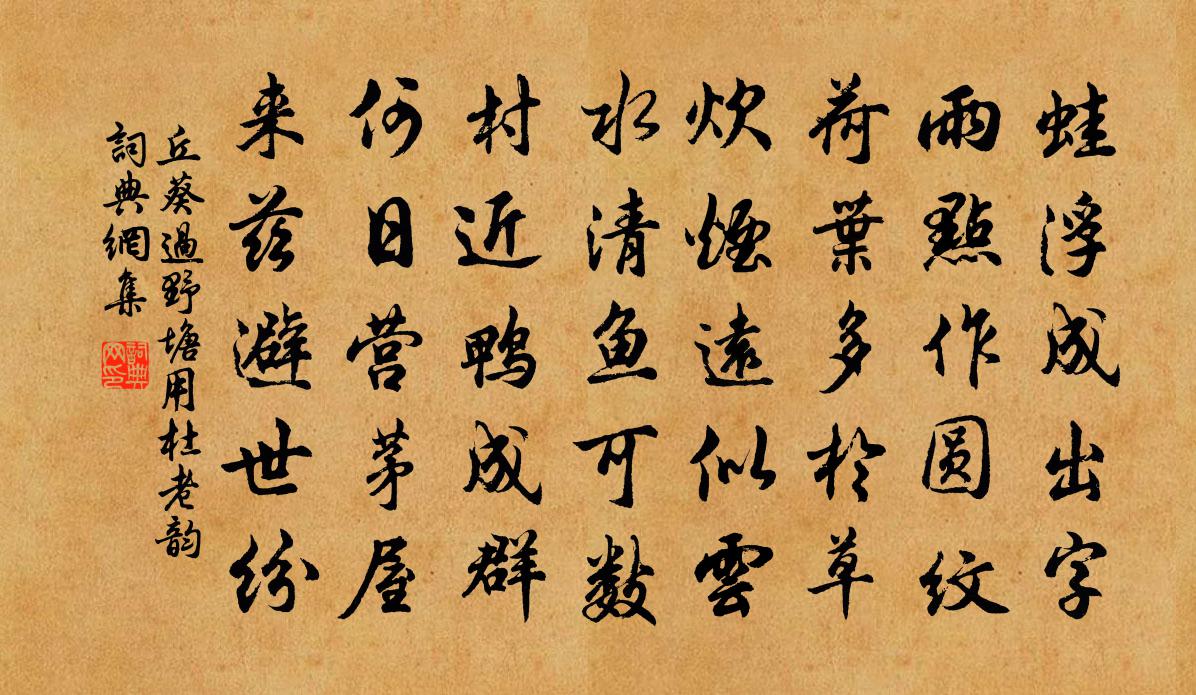 蛙浮成出字
雨點作圆紋
荷葉多於草
炊煙遠似雲
水清鱼可数
村近鴨成群
何日营茅屋
来兹避世纷
丘葵過野塘用杜老韵
詞典網集
詞典網印